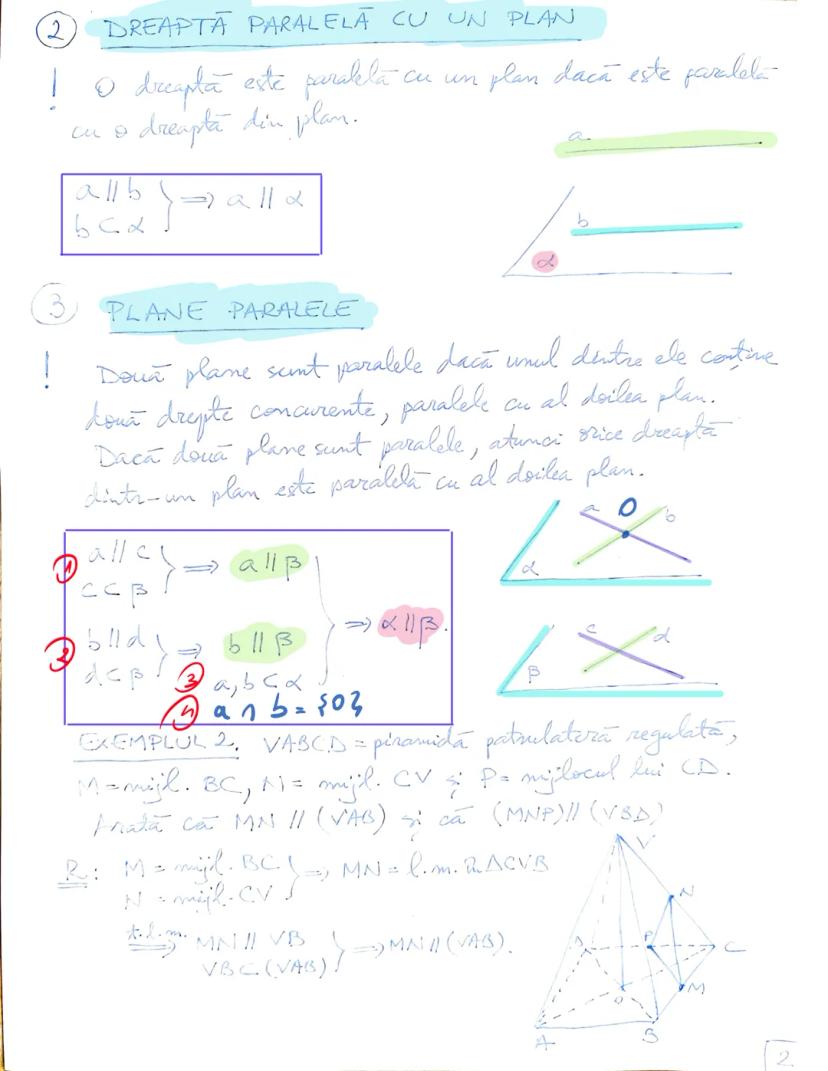 2 DREAPTĂ PARALELĂ CU UN PLAN
! O dreaptă este paralelă cu un plan dacă este paralelă
cu o dreaptă din plan.
a
a // b
b ⊂ α } ⇒ a // α
b
α
3 PLANE PARALELE
! Două plane sunt paralele dacă unul dintre ele conține
două drepte concurente, paralele cu al doilea plan.
Dacă două plane sunt paralele, atunci orice dreaptă
dintr-un plan este paralelă cu al doilea plan.
a O b
α
1 a // c
c ⊂ β } ⇒ a // β
2 b // d
d ⊂ β } ⇒ b // β } ⇒ α // β.
3 a, b ⊂ α
4 a ∩ b = {O}
c d
β
EXEMPLUL 2. VABCD = piramidă patrulateră regulată,
M = mijl. BC, N = mijl. CV și P = mijlocul lui CD.
Arată că MN // (VAB) și că (MNP) // (VBD)
R: M = mijl. BC
N = mijl. CV } ⇒ MN = l.m. în ΔCVB
t.l.m. ⇒ MN // VB
VB ⊂ (VAB) } ⇒ MN // (VAB).
V
N
D P C
O M
A B
2